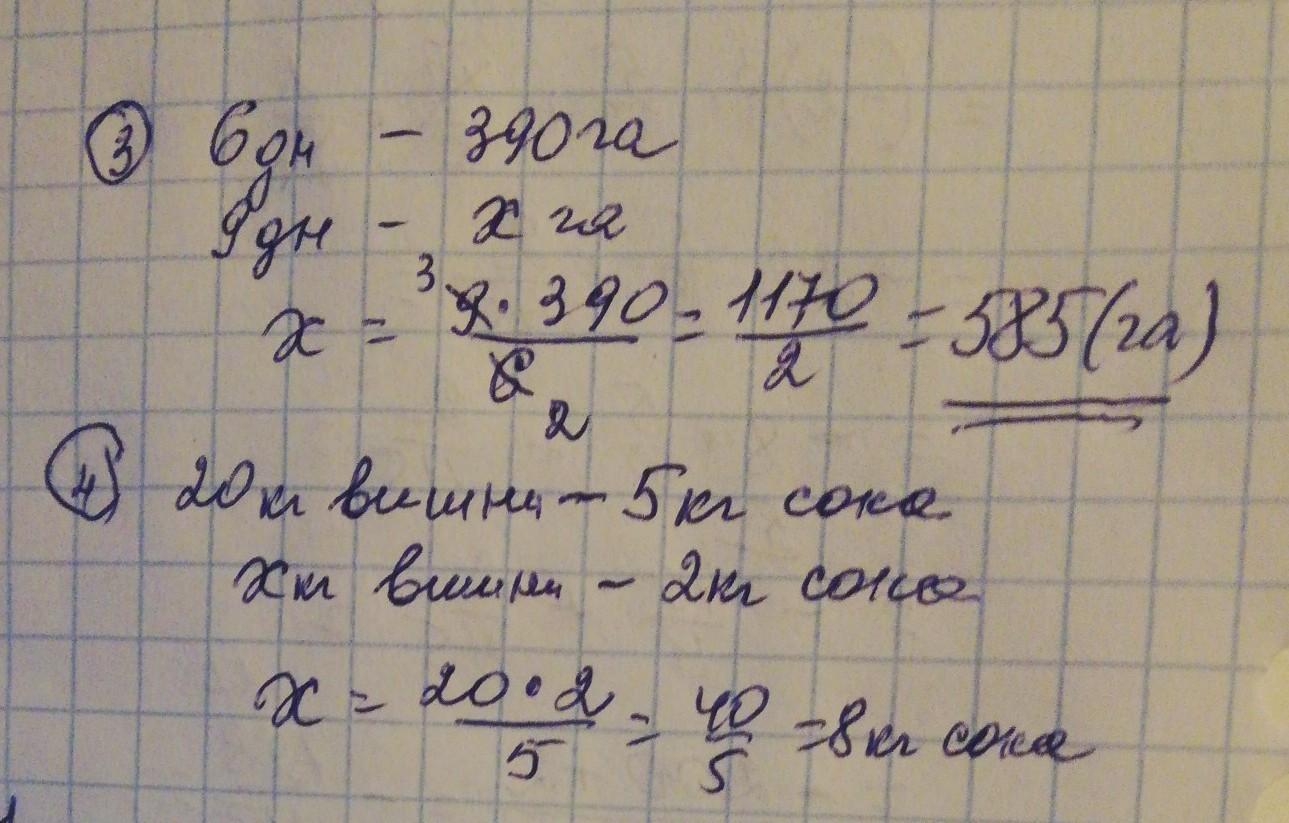 ③ 6дн – 390га
9дн – х га
х = ³9·390/6 2 = 1170/2 = 585(га)
④ 20кг вишни – 5кг сока
хкг вишни – 2кг сока
х = 20·2/5 = 40/5 = 8кг сока